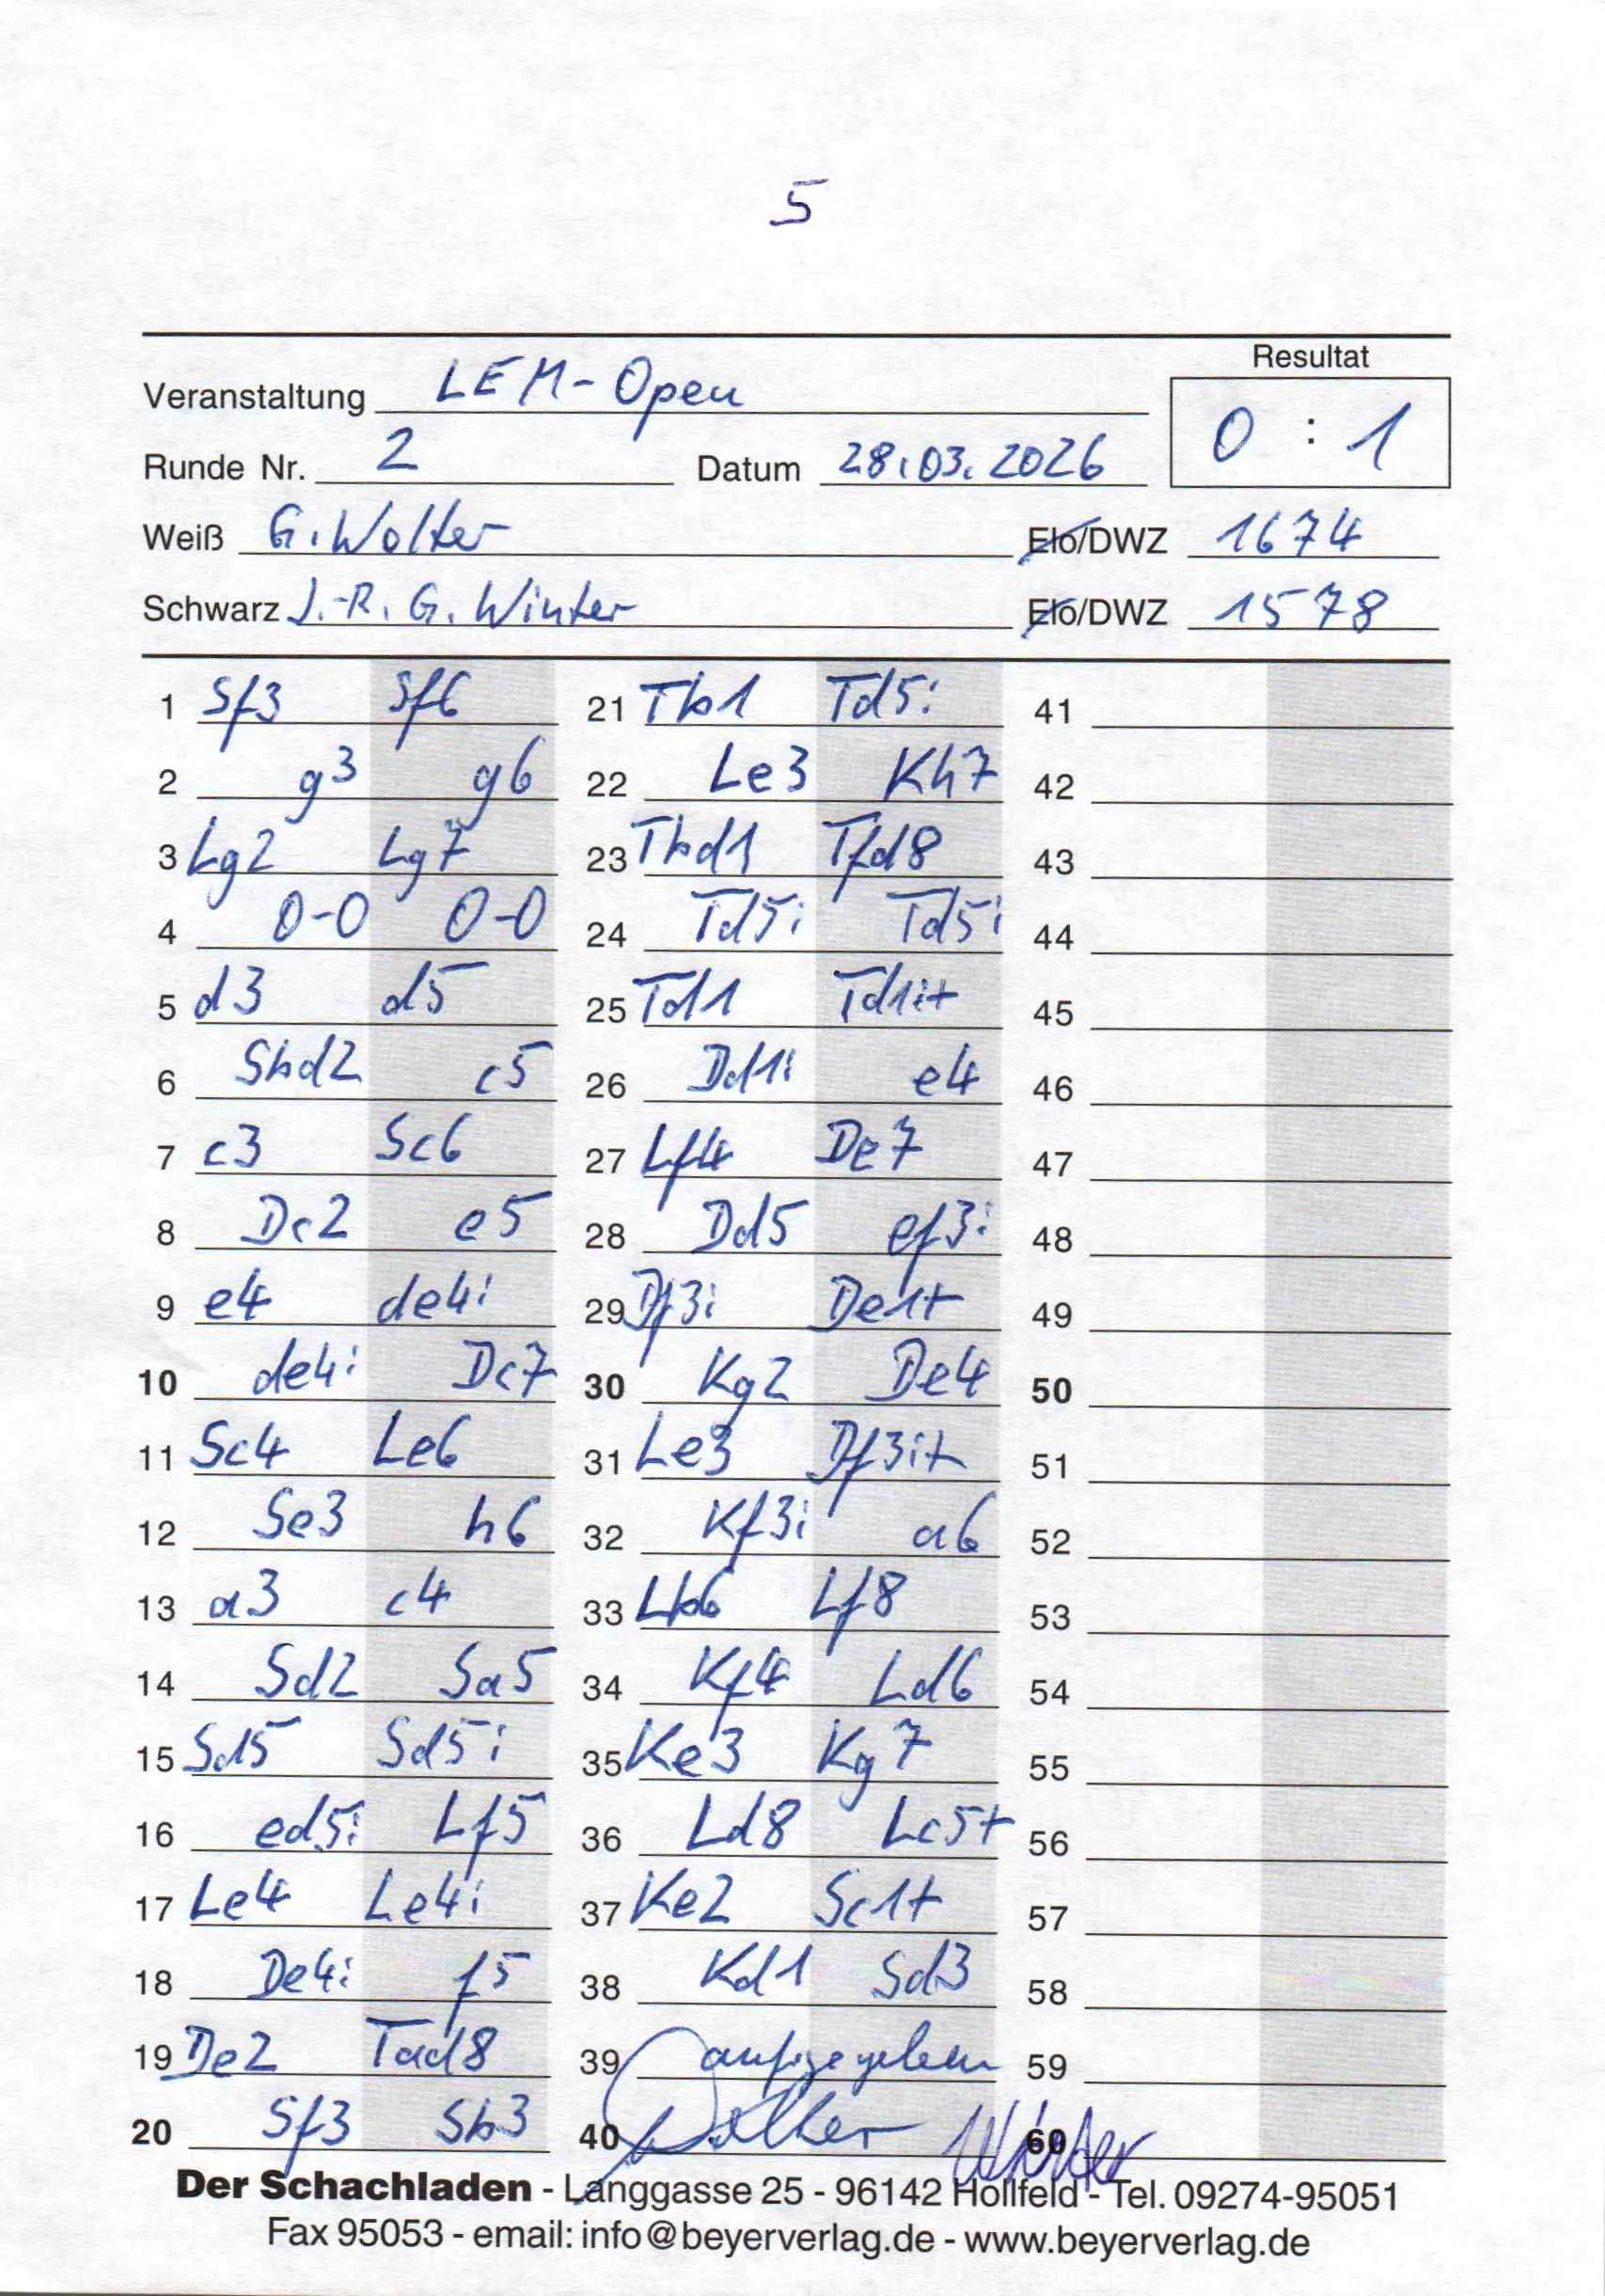 5
Resultat
Veranstaltung LEM-Open
0 : 1
Runde Nr. 2 Datum 28.03.2026
Weiß G. Wolter Elo/DWZ 1674
Schwarz J.-R. G. Winter Elo/DWZ 1578
1 Sf3 Sf6 21 Tb1 Td5: 41
2 g3 g6 22 Le3 Kh7 42
3 Lg2 Lg7 23 Tbd1 Tfd8 43
4 0-0 0-0 24 Td5: Td5: 44
5 d3 d5 25 Td1 Td1:+ 45
6 Sbd2 c5 26 Dd1: e4 46
7 c3 Sc6 27 Lf4 De7 47
8 Dc2 e5 28 Dd5 ef3: 48
9 e4 de4: 29 Df3: De1+ 49
10 de4: Dc7 30 Kg2 De4 50
11 Sc4 Le6 31 Le3 Df3:+ 51
12 Se3 h6 32 Kf3: a6 52
13 a3 c4 33 Lb6 Lf8 53
14 Sd2 Sa5 34 Kf4 Ld6 54
15 Sd5 Sd5: 35 Ke3 Kg7 55
16 ed5: Lf5 36 Ld8 Lc5+ 56
17 Le4 Le4: 37 Ke2 Sc1+ 57
18 De4: f5 38 Kd1 Sd3 58
19 De2 Tad8 39 aufgegeben 59
20 Sf3 Sb3 40 Wolter Winter 60
Der Schachladen - Langgasse 25 - 96142 Hollfeld - Tel. 09274-95051
Fax 95053 - email: info@beyerverlag.de - www.beyerverlag.de